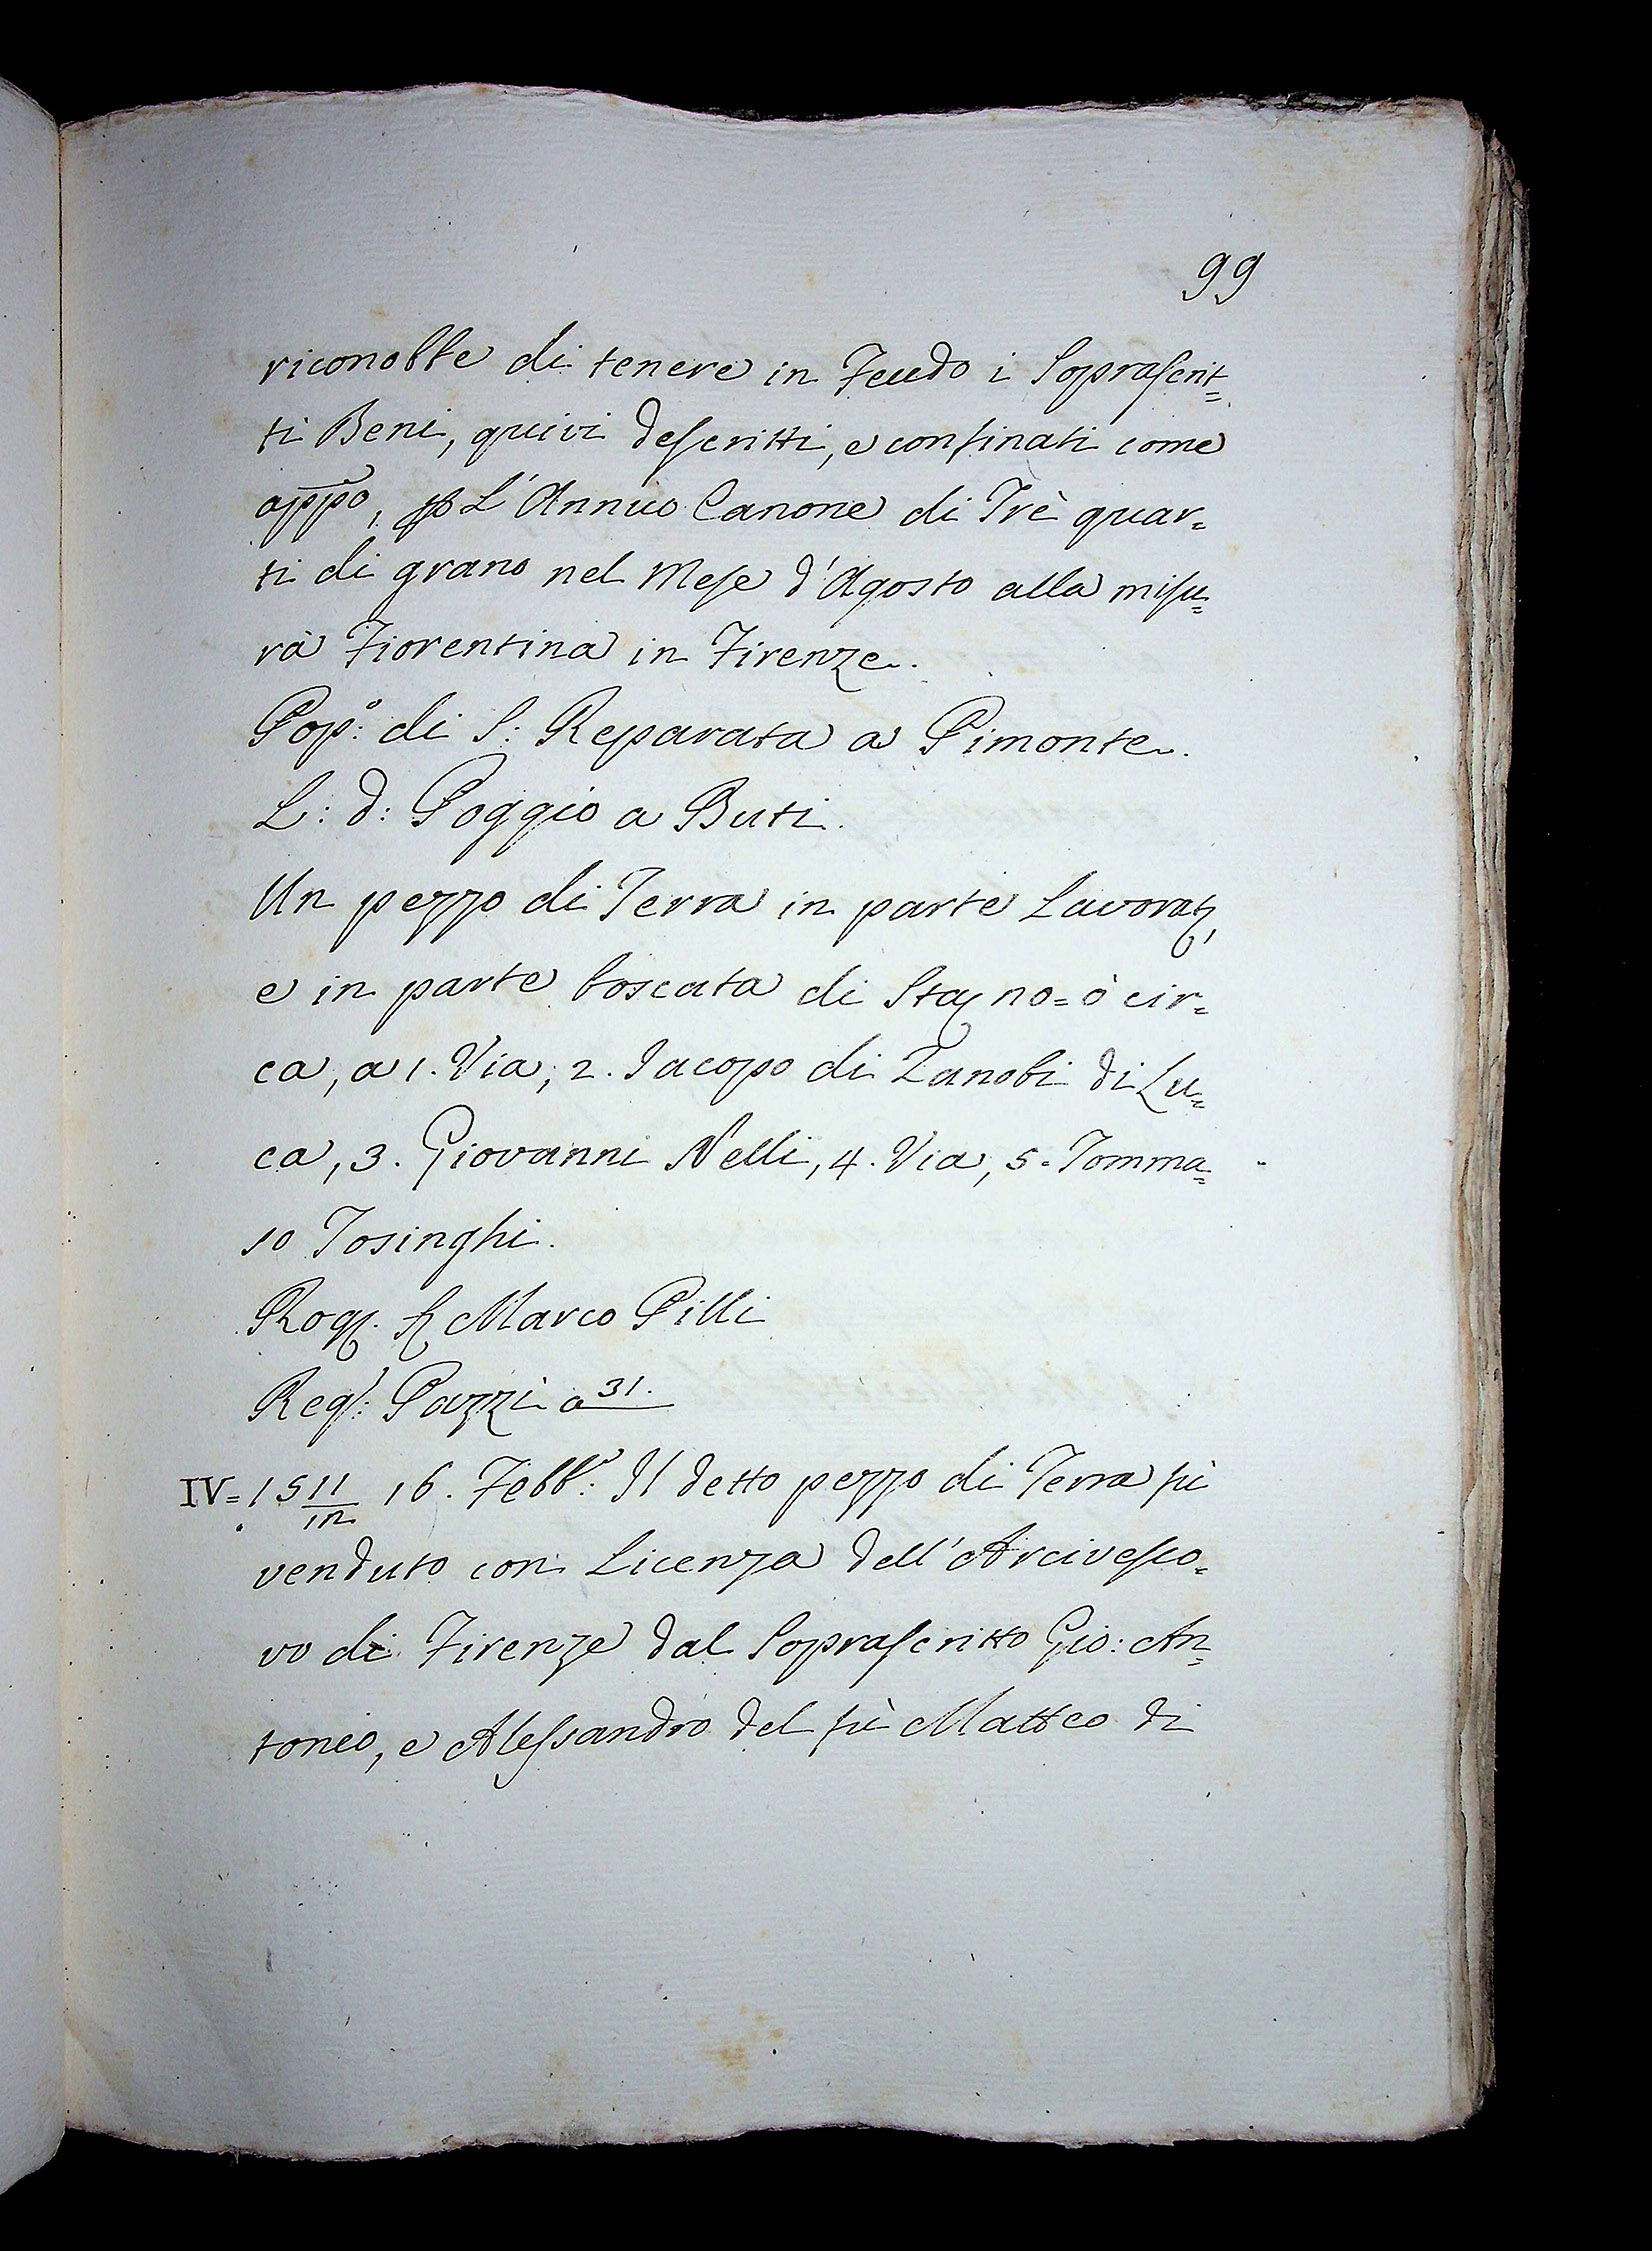 99
riconobbe di tenere in Feudo i Soprascrit=
ti Beni, quivi descritti, e confinati come
appo, p L'Annuo Canone di Trè quar=
ti di grano nel Mese d'Agosto alla misu=
ra Fiorentina in Firenze.
Pop:o di S: Reparata a Pimonte.
L: d: Poggio a Buti.
Un pezzo di Terra in parte Lavorat,
e in parte boscata di Sta no= 6 cir=
ca, a 1. Via, 2. Iacopo di Zanobi di Lu=
ca, 3. Giovanni Nelli, 4. Via, 5. Tomma=
so Tosinghi.
Rog. Marco Pilli
Reg: Pazzi a 31.
IV= 1511/12 16. Febb:o Il detto pezzo di Terra fù
venduto con Licenza dell'Arcivesco=
vo di Firenze dal Soprascritto Gio: An=
tonio, e Alessandro del fù Matteo di